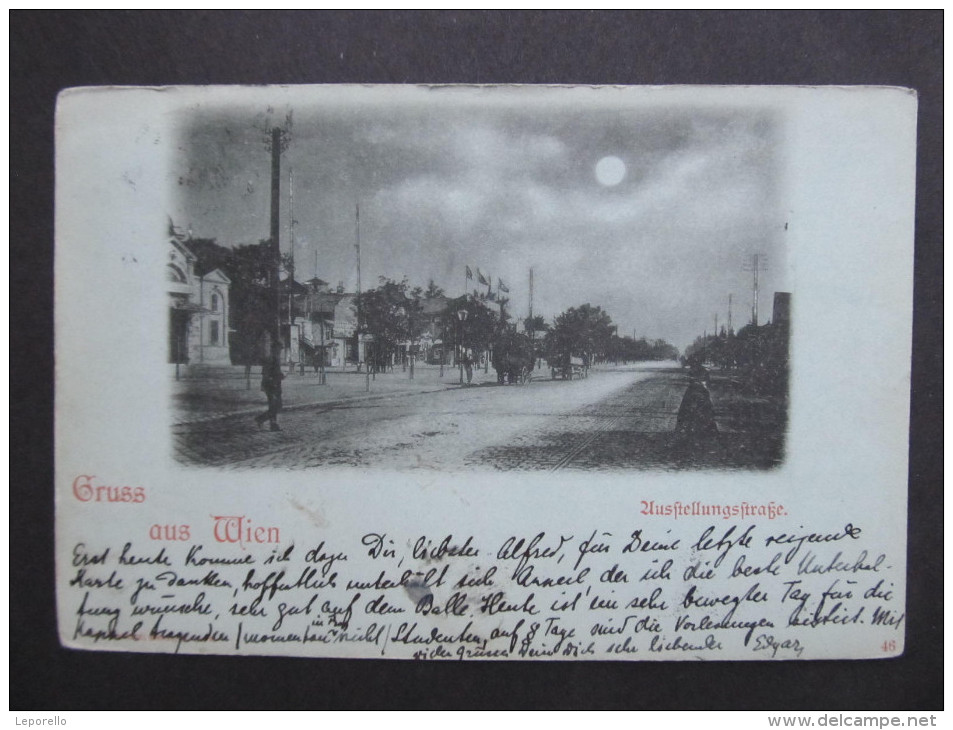 Gruss
aus Wien
Ausstellungsstraße.
Erst heute komme ich dazu Dir, liebster Alfred, für Deine letzte reizende
Karte zu danken, hoffentlich unterhält sich der ich die beste Unterhal-
tung wünsche, sehr gut auf dem Balle. Heute ist ein sehr bewegter Tag für die
Kappel tragenden /momentan in Prag nicht/ Studenten, auf 8 Tage sind die Vorlesungen sistirt. Mit
vielen Grüssen Dein Dich sehr liebender Edgar
46
Leporello
www.delcampe.net